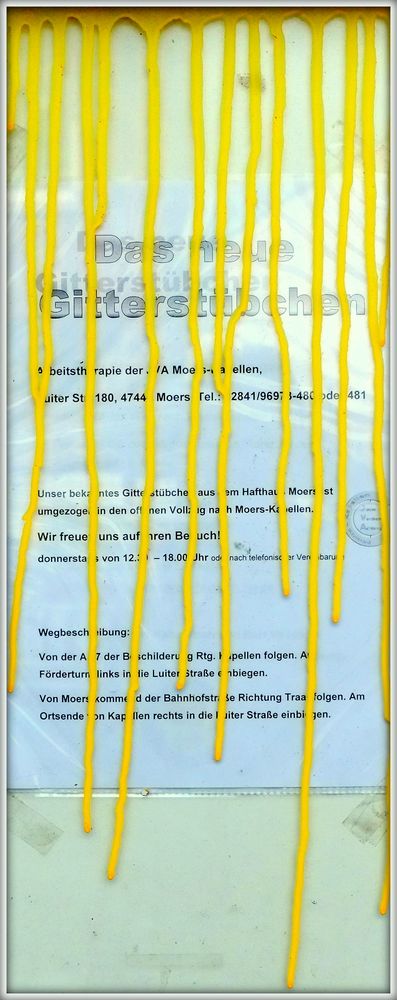 Das neue
Gitterstübchen
Arbeitstherapie der JVA Moers-Kapellen,
Luiter Str. 180, 4744 Moers Tel.: 2841/96973-480 oder 481
Unser bekanntes Gitterstübchen aus dem Hafthaus Moers ist
umgezogen in den offenen Vollzug nach Moers-Kapellen.
Wir freuen uns auf Ihren Besuch!
donnerstags von 12.30 – 18.00 Uhr oder nach telefonischer Vereinbarung
Wegbeschreibung:
Von der A57 der Beschilderung Rtg. Kapellen folgen. Am
Förderturm links in die Luiter Straße einbiegen.
Von Moers kommend der Bahnhofstraße Richtung Traar folgen. Am
Ortsende von Kapellen rechts in die Luiter Straße einbiegen.